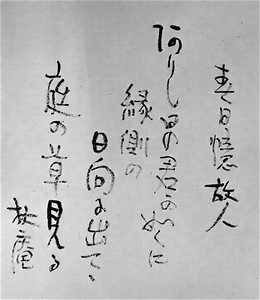 春日憶故人
ありし日の君の如くに
縁側の
日向に出でて
庭の草見る
秋庵